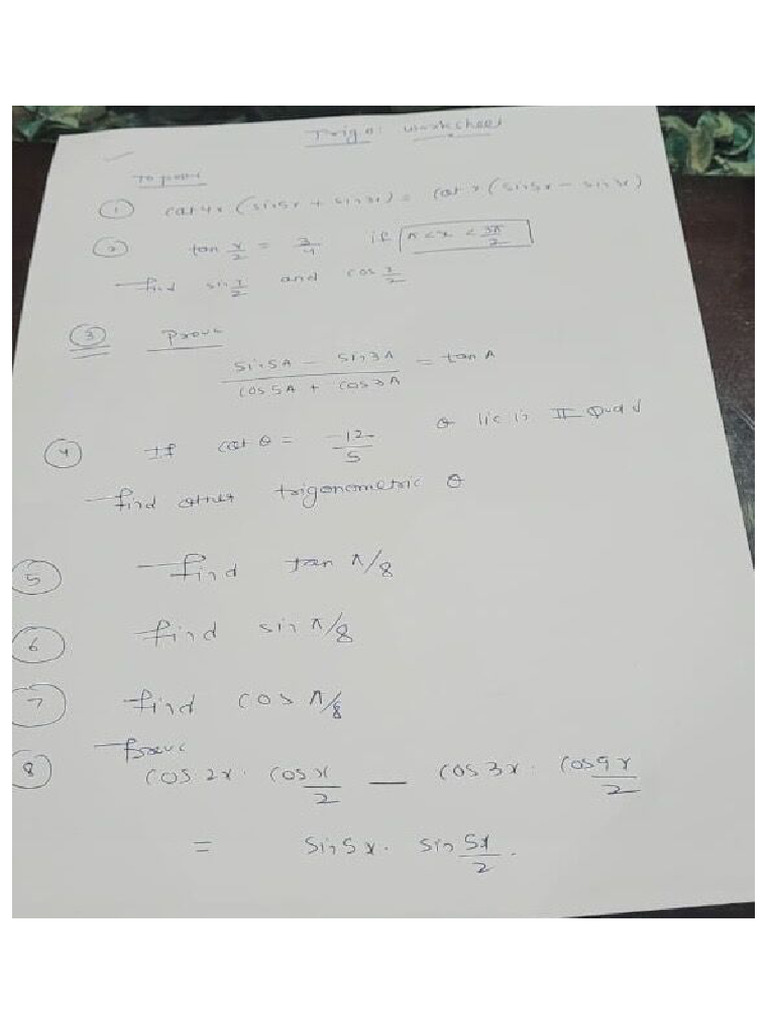 Trigo: Worksheet
To prove
① cot 4x (sin 5x + sin 3x) = cot x (sin 5x - sin 3x)
② tan x/2 = 3/4 if π < x < 3π/2
find sin x/2 and cos x/2
③ Prove
sin 5A - sin 3A / cos 5A + cos 3A = tan A
④ If cot θ = -12/5 θ lie in II Quad
find other trigonometric θ
⑤ find tan π/8
⑥ find sin π/8
⑦ find cos π/8
Prove
⑧ cos 2x · cos x/2 - cos 3x · cos 9x/2
= sin 5x · sin 5x/2 .